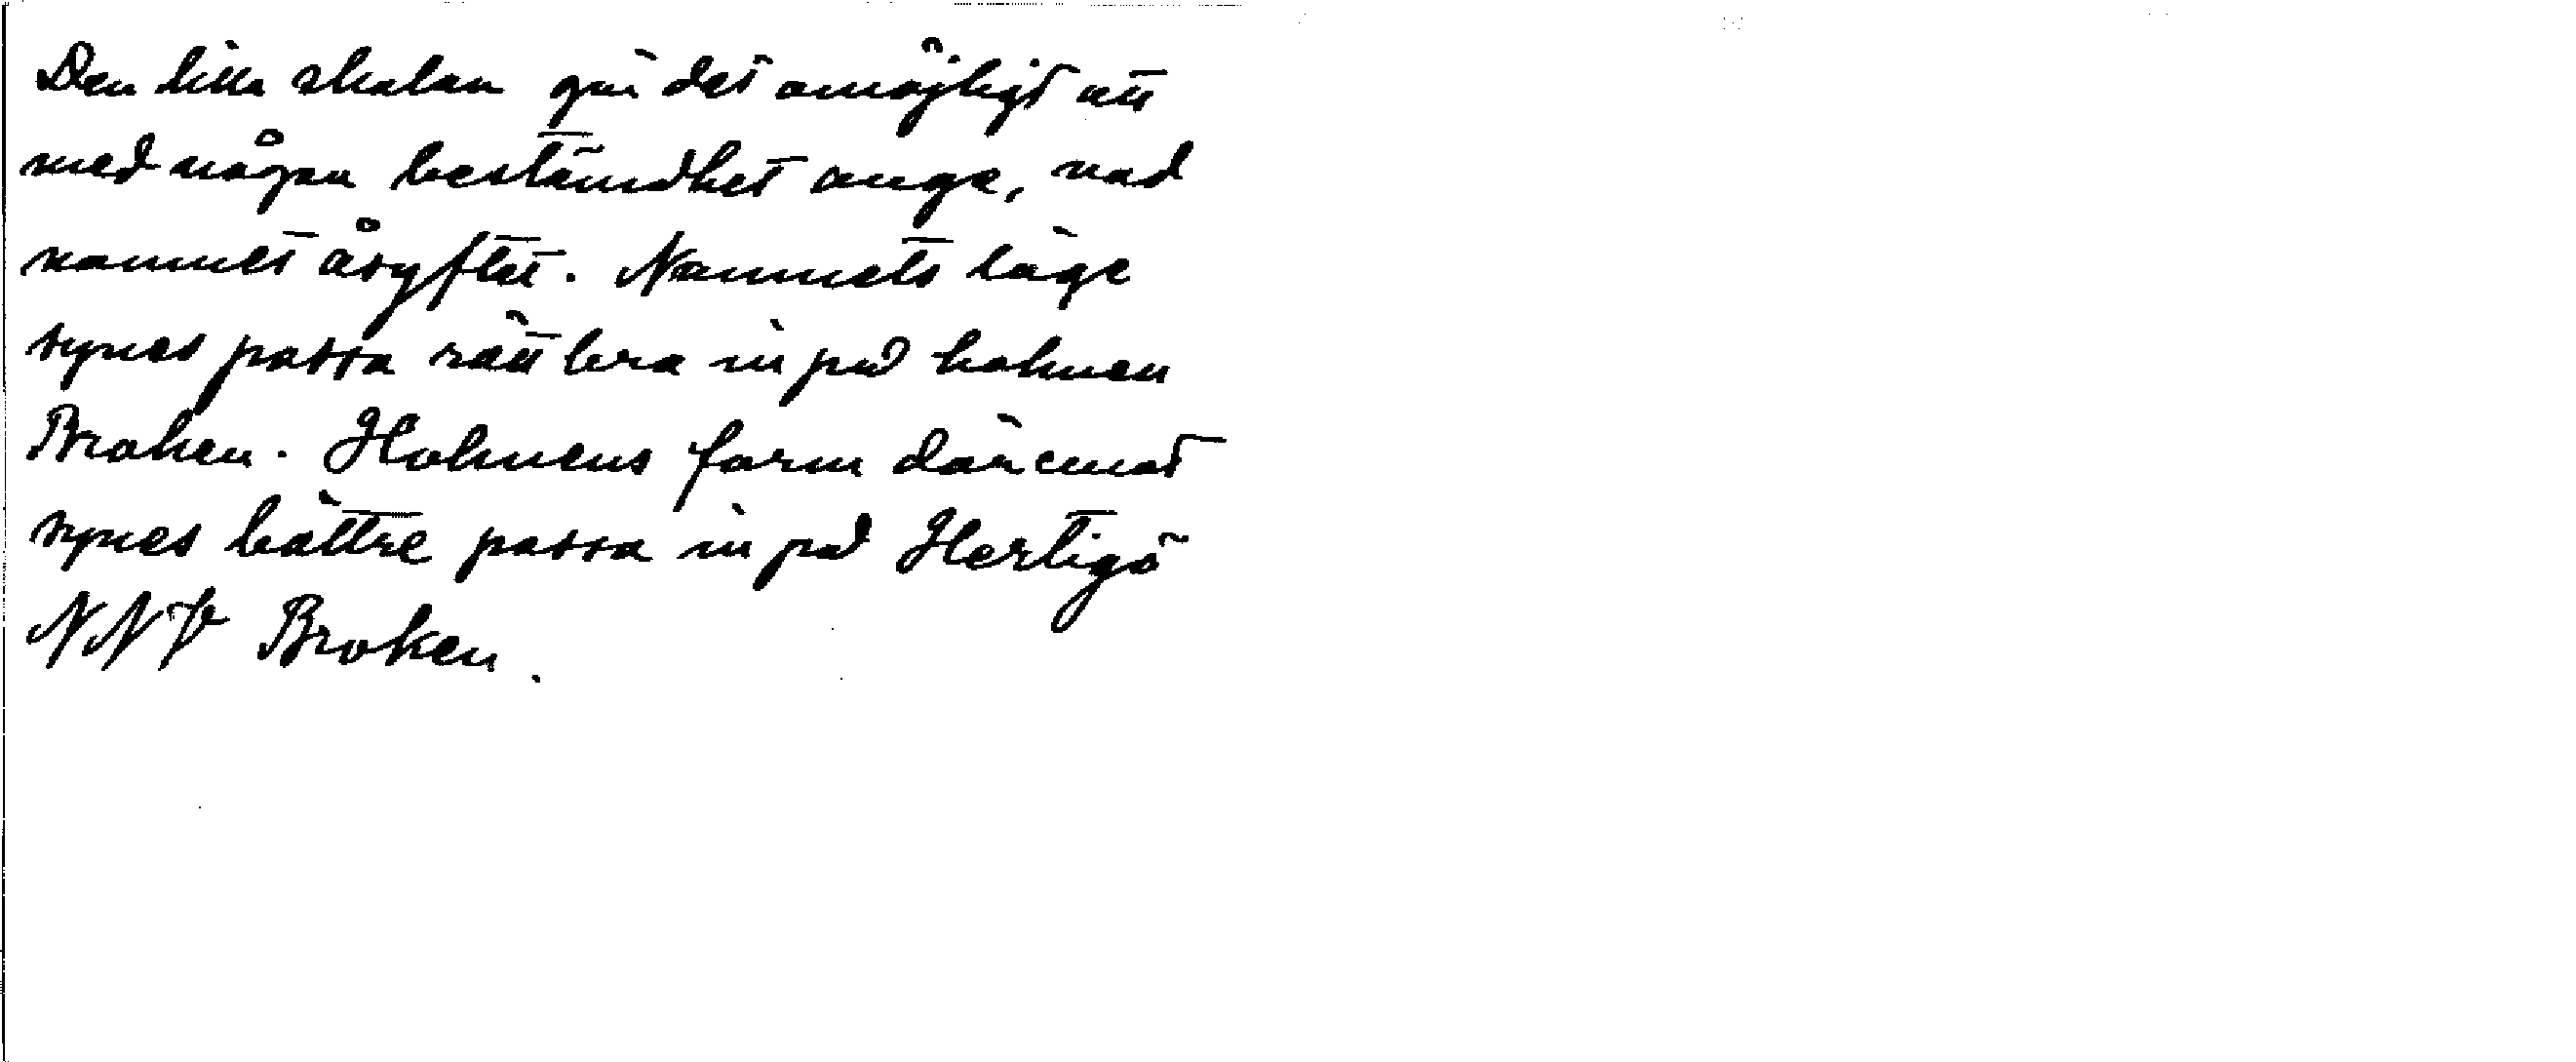 Den lilla skalan gör det omöjligt att
med någon bestämdhet ange, vad
namnet åsyftat. Namnets läge
synes passa rätt bra in på holmen
Broken. Holmens form däremot
synes bättre passa in på Hertigö
NNV Broken.